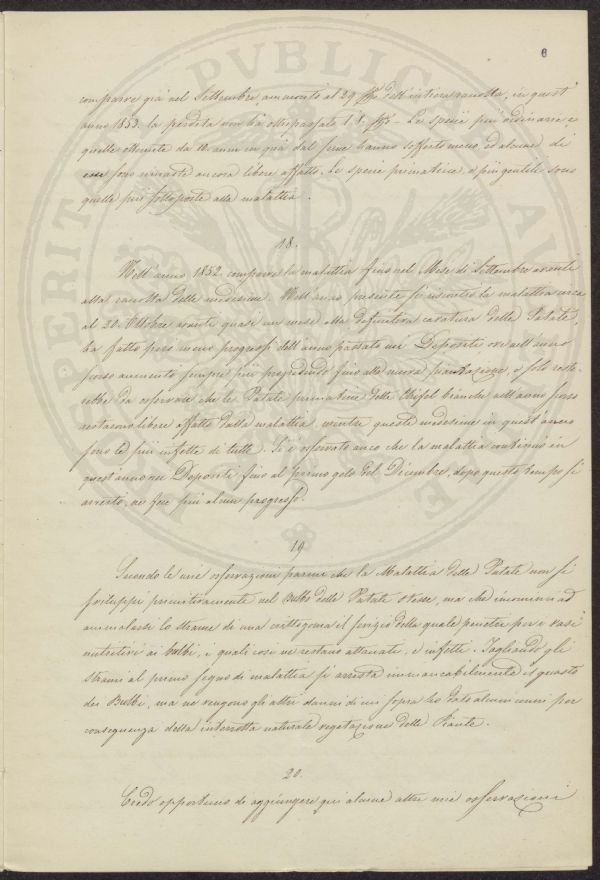 6
comparve già nel Settembre, ammontò al 29 p% dell'intiera racolta, in quest'
anno 1853. la perdita non ha oltrepassato 1 8. p% – Le specie più ordinarie e
quelle ottenute da 10. anni in quà dal seme hanno sofferto meno, ed alcune di
esse sono rimaste ancora libere affatto. Le specie primaticcie, o più gentili sono
quelle più sottoposte alla malattia.
18.
Nell'anno 1852. comparve la malattia fino nel Mese di Settembre avanti
alla racolta delle medesime. Nell'anno presente si riscontrò la malattia circa
al 20. Ottobre avanti quasi un mese alla definitiva cavatura delle Patate,
ha fatto però meno progressi dell'anno passato nei Depositi ove nell'anno
scorso aumentò sempre più progredendo fino alla nuova piantagione, e solo reste-
rebbe da osservare che le Patate primaticcie dette Chifel bianche nell'anno scorso
restarono libere affatto dalla malattia, mentre queste medesime in quest'anno
sono le più infette di tutte. Si è osservato anco che la malattia continuò in
quest'anno nei Depositi fino al primo gelo del Décembre, dopo questo tempo si
arrestò, ne fece più alcun progresso.
19
Secondo le mie osservazioni parmi che la Malattia delle Patate non si
sviluppi primitivamente nel Bulbo delle Patate stesse, ma che incominci ad
ammalarsi lo strame di una crittogama il sporizio della quale penetra per i vasi
nutritivi ai bulbi, i quali così ne restano attaccati, e infetti. Tagliando gli
strami al primo segno di malattia si arresta immancabilmente il guasto
dei Bulbi, ma ne vengono gli altri danni di cui sopra ho dato alcuni cenni per
conseguenza della interrotta naturale vegetazione delle Piante.
20.
Credo opportuno di aggiungere qui alcune altre mie osservazioni